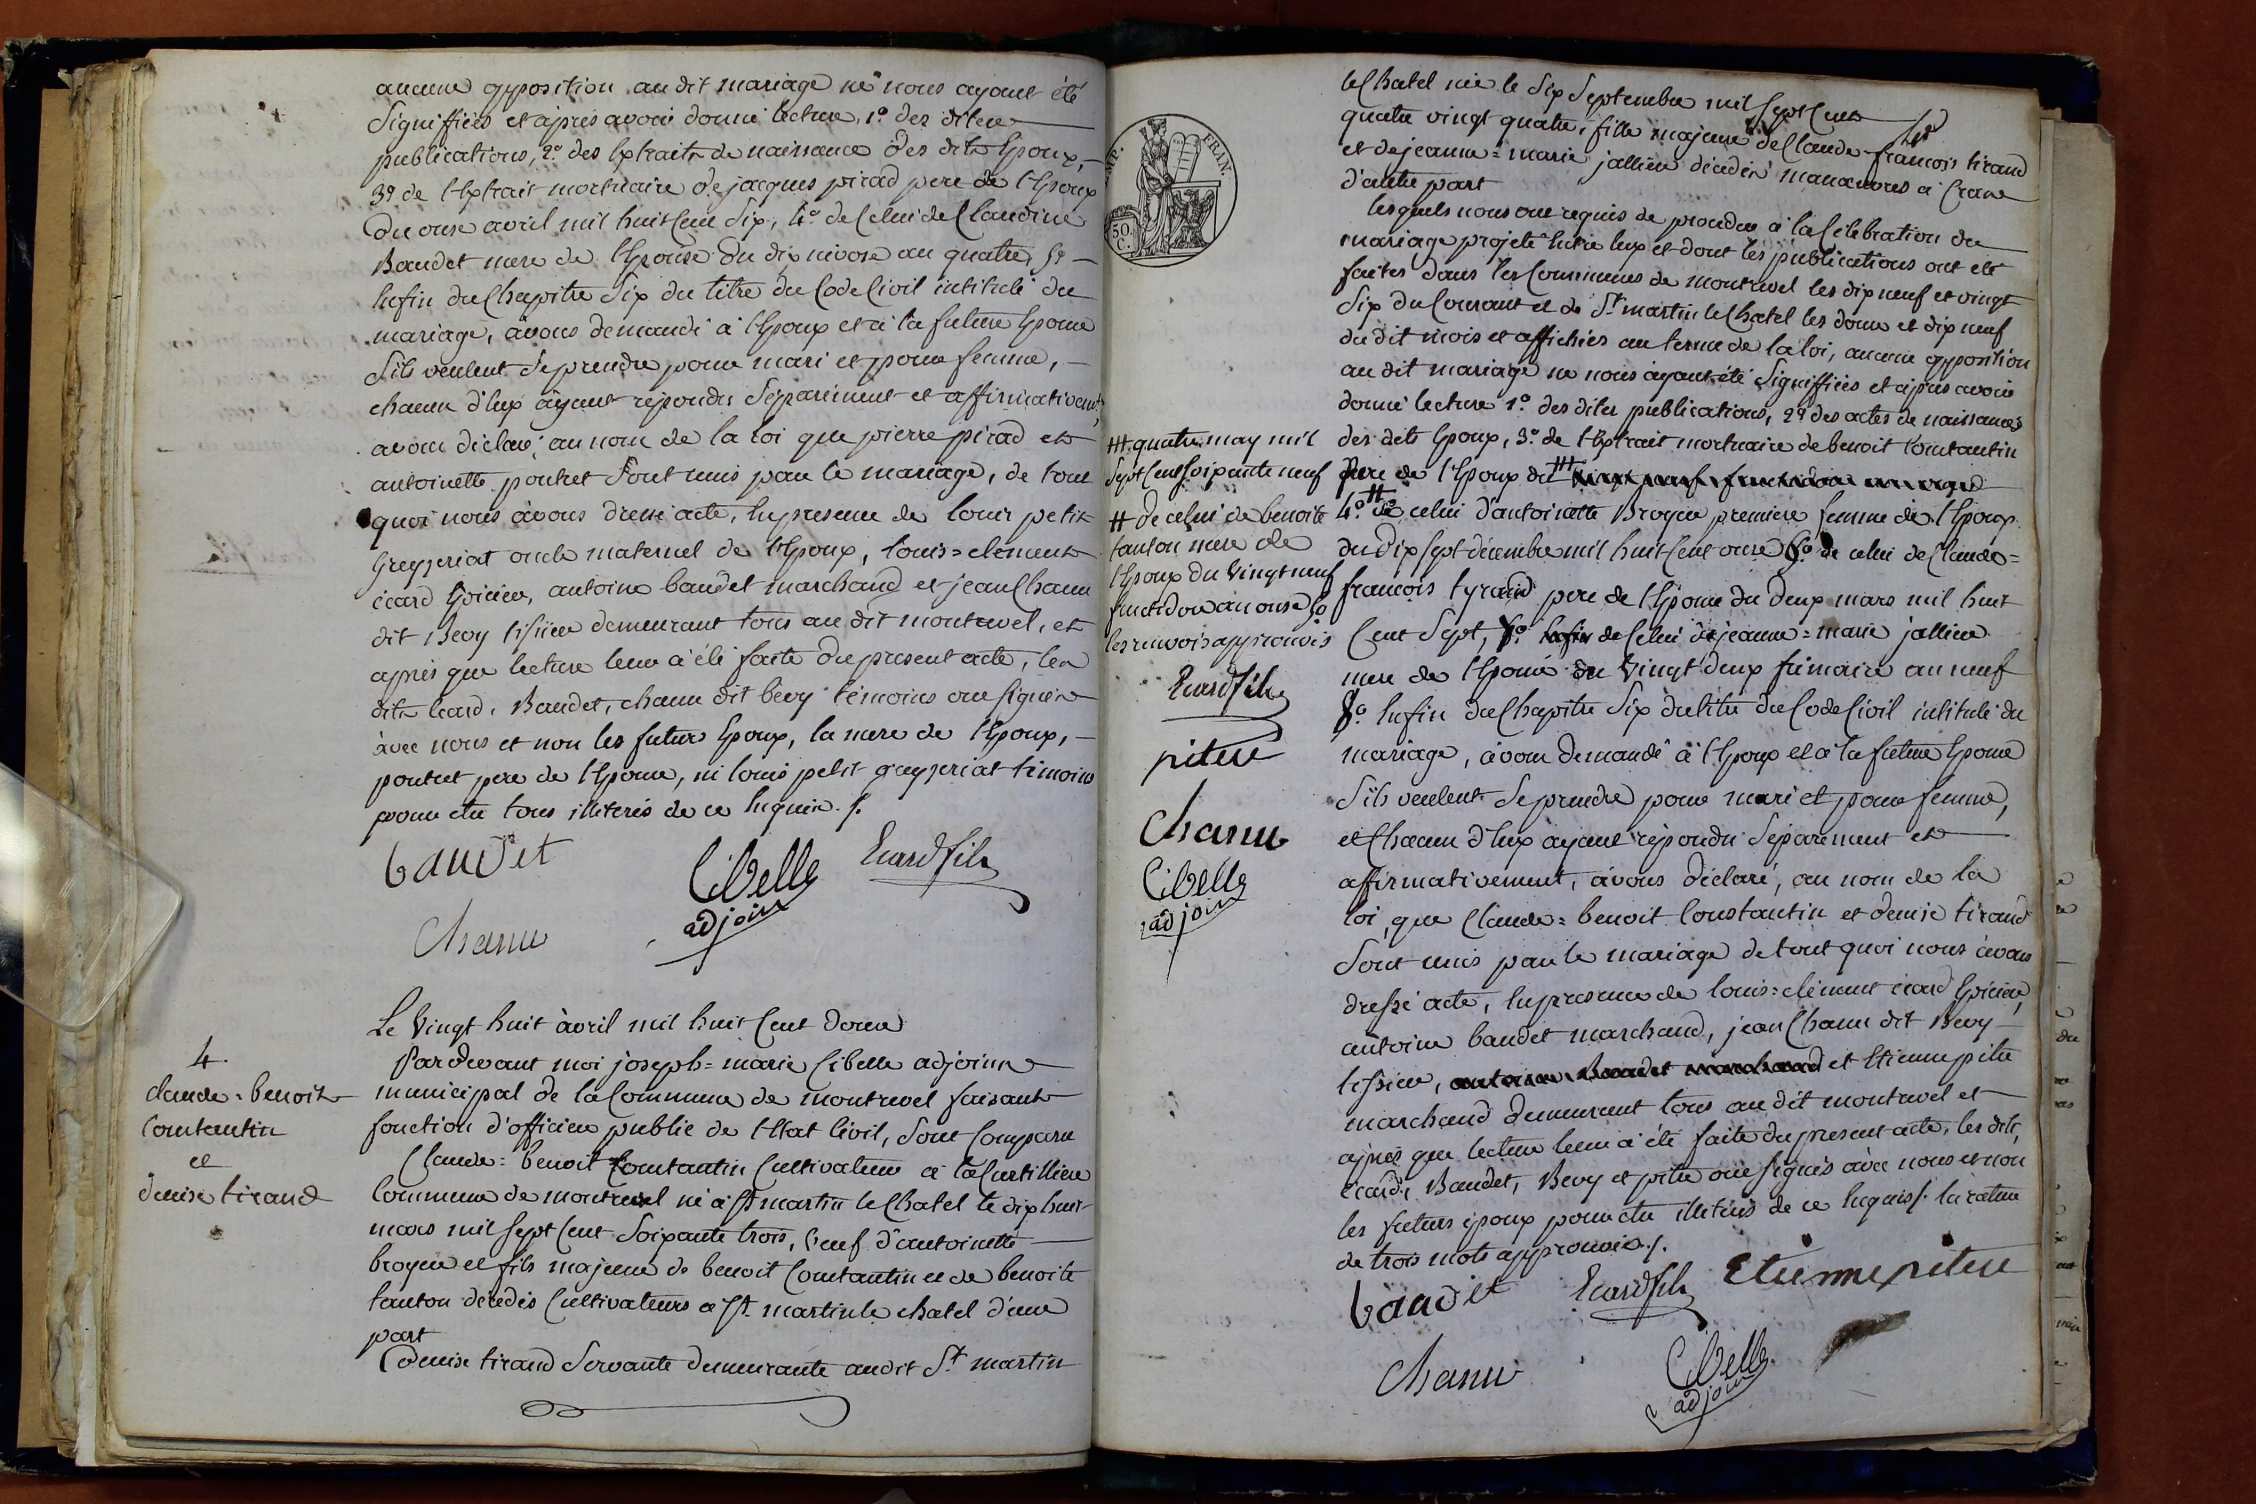 aucune opposition au dit mariage ne nous ayant été
Signiffiées et après avoir donné lecture, 1.º des dites
publications, 2.º des Extraits de naissance des dits Epoux,
3.º de l'Extrait mortuaire de jacques pirad pere de l'Epoux
Du onze avril mil huit Cent Six, 4.º de Celui de Claudine
Baudet mere de l'Epouse du dix nivose an quatre, 5.º
Enfin du Chapitre Six du titre du Code Civil intitulé du
mariage, avons demandé à l'Epoux et à la future Epouse
S'ils veulent Se prendre pour mari et pour femme,
chacun d'Eux ayant repondu Séparément et affirmativement,
avons déclaré au nom de la loi que pierre pirad et
antoinette pontet Sont unis par le mariage, de tout
quoi nous avons dressé acte, En presence de louis petit
Greyzeriat oncle maternel de l'Epoux, louis=clément
écard Epicier, antoine baudet marchand et jean Chanu
dit Bevy tissier demeurant tous au dit montrevel, et
après que lecture leur à été faite du present acte, les
dits écard, Baudet, chanu dit bevy témoins ont Signés
avec nous et non les futurs Epoux, la mere de l'Epoux,
pontet pere de l'Epouse, ni louis petit greyzeriat témoins
pour être tous illiterés de ce Enquis ./.
baudet
Cibelle
adjoint
Ecard fils
Chanu
4.
claude=benoit
Constantin
et
denise tirand
Le Vingt huit avril mil huit Cent douze
Pardevant moi joseph=marie Cibelle adjoint
municipal de la Commune de montrevel faisant
fonction d'officier public de l'Etat Civil, Sont Comparu
Claude=benoit Constantin Cultivateur à la Curtillière
Commune de montrevel né à St. martin le Chatel le dix huit
mars mil Sept Cent Soixante trois, Veuf d'antoinette
broyer et fils majeur de benoit Constantin et de benoite
tanton décedés Cultivateurs à St. martin le chatel d'une
part
Et denise tirand Servante demeurante au dit St. martin
IMP. FRAN.
50.
C.
le Chatel née le Six Septembre mil Sept Cent
quatre vingt quatre, fille majeure de Claude-françois tirand
et de jeanne=marie jallier décedés manœuvres à Cras
d'autre part
lesquels nous ont requis de proceder à la Célébration du
mariage projeté Entre Eux et dont les publications ont été
faites dans les Communes de montrevel les dix neuf et vingt
Six du Courant et de St. martin le Chatel les douze et dix neuf
du dit mois et affichées au terme de la loi, aucune opposition
au dit mariage ne nous ayant été Signiffiées et après avoir
donné lecture 1.º des dites publications, 2.º des actes de naissances
des dits Epoux, 3.º de l'Extrait mortuaire de benoit Constantin
Pere de l'Epoux du ### vingt neuf fructidor an onze
4.º ## de celui d'antoinette Broyer premiere femme de l'Epoux
du dix Sept décembre mil huit Cent onze 6.º de celui de Claude=
françois tyrand pere de l'Epouse du deux mars mil huit
Cent Sept, 7.º Enfin de Celui de jeanne=marie jallier
mere de l'Epouse du Vingt deux frimaire an neuf
8.º Enfin du Chapitre Six du titre du Code Civil intitulé du
mariage, avons demandé à l'Epoux et à la future Epouse
S'ils veulent Se prendre pour mari et pour femme,
et Chacun d'Eux ayant répondu Séparément et
affirmativement, avons déclaré, au nom de la
loi, que Claude=benoit Constantin et denise tirand
Sont unis par le mariage de tout quoi nous avons
dressé acte, En presence de louis=clément écard Epicier,
antoine baudet marchand, jean Chanu dit Bevy
tissier, antoine Baudet marchand et Etienne pitre
marchand demeurant tous au dit montrevel et
après que lecture leur à été faite du present acte, les dits
écard, Baudet, Bevy et pitre ont Signés avec nous et non
les futurs époux pour être illiterés de ce Enquis ./. la rature
de trois mots approuvée ./.
### quatre may mil
Sept Cent Soixante neuf
## de celui de benoite
tanton mere de
l'Epoux du Vingt neuf
fructidor an onze 5.º
les renvois approuvés
Ecard fils
pitre
Chanu
Cibelle
adjoint
baudet
Ecard fils
Etienne pitre
Chanu
Cibelle
adjoint